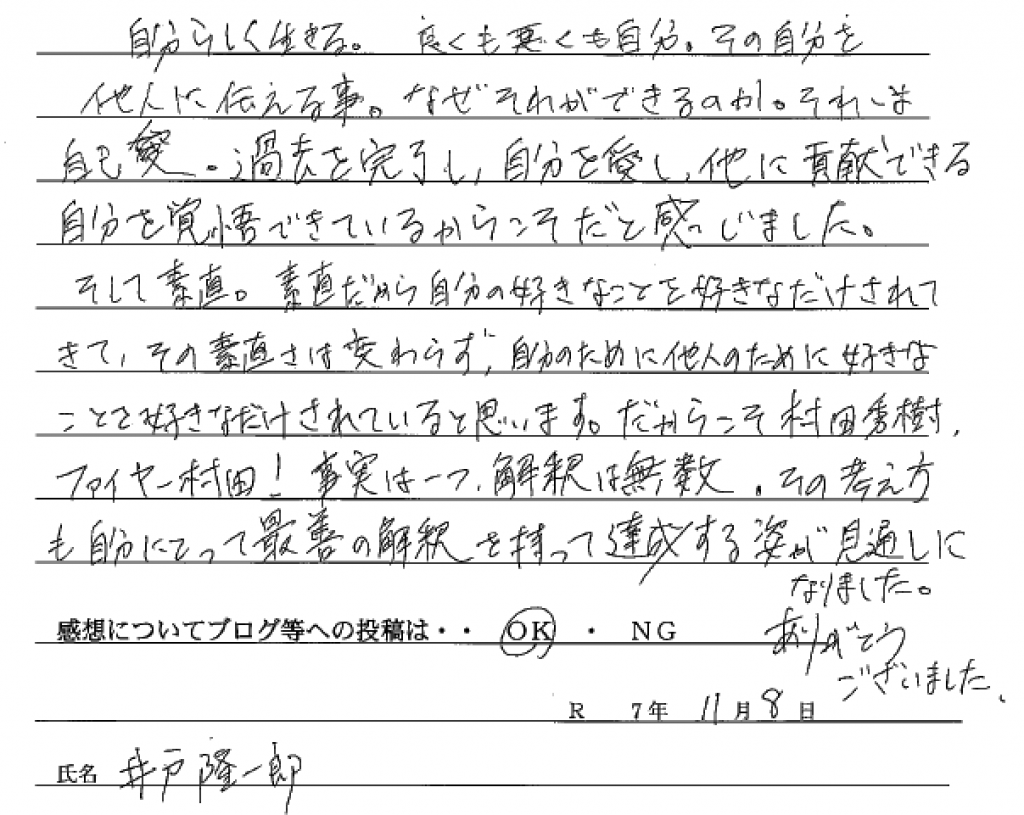 自分らしく生きる。 良くも悪くも自分。その自分を
他人に伝える事。なぜそれができるのか。それは
自己愛。過去を完了し、自分を愛し、他に貢献できる
自分を覚悟できているからこそだと感じました。
そして素直。素直だから自分の好きなことを好きなだけされて
きて、その素直さは変わらず、自分のために他人のために好きな
ことを好きなだけされていると思います。だからこそ村田秀樹、
ファイヤー村田！事実は一つ、解釈は無数。その考え方
も自分にとって最善の解釈を持って達成する姿が見通しに
なりました。
感想についてブログ等への投稿は・・ OK ・ NG
ありがとう
ございました、
R 7年 11月 8日
氏名 井戸隆一郎